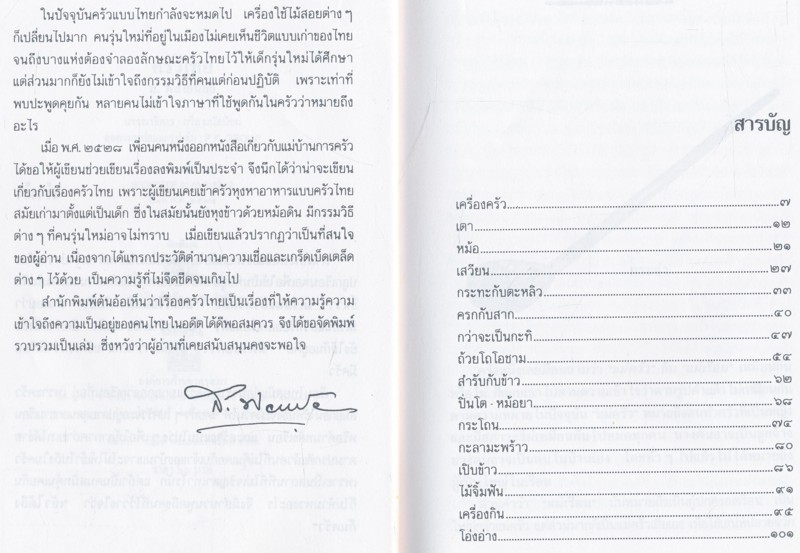 ในปัจจุบันครัวแบบไทยกำลังจะหมดไป เครื่องใช้ไม้สอยต่าง ๆ
ก็เปลี่ยนไปมาก คนรุ่นใหม่ที่อยู่ในเมืองไม่เคยเห็นชีวิตแบบเก่าของไทย
จนถึงบางแห่งต้องจำลองลักษณะครัวไทยไว้ให้เด็กรุ่นใหม่ได้ศึกษา
แต่ส่วนมากก็ยังไม่เข้าใจถึงกรรมวิธีที่คนแต่ก่อนปฏิบัติ เพราะเท่าที่
พบปะพูดคุยกัน หลายคนไม่เข้าใจภาษาที่ใช้พูดกันในครัวว่าหมายถึง
อะไร
เมื่อ พ.ศ. ๒๕๒๘ เพื่อนคนหนึ่งออกหนังสือเกี่ยวกับแม่บ้านการครัว
ได้ขอให้ผู้เขียนช่วยเขียนเรื่องลงพิมพ์เป็นประจำ จึงนึกได้ว่าน่าจะเขียน
เกี่ยวกับเรื่องครัวไทย เพราะผู้เขียนเคยเข้าครัวหุงหาอาหารแบบครัวไทย
สมัยเก่ามาตั้งแต่เป็นเด็ก ซึ่งในสมัยนั้นยังหุงข้าวด้วยหม้อดิน มีกรรมวิธี
ต่าง ๆ ที่คนรุ่นใหม่อาจไม่ทราบ เมื่อเขียนแล้วปรากฏว่าเป็นที่สนใจ
ของผู้อ่าน เนื่องจากได้แทรกประวัติตำนานความเชื่อและเกร็ดเบ็ดเตล็ด
ต่าง ๆ ไว้ด้วย เป็นความรู้ที่ไม่จืดชืดจนเกินไป
สำนักพิมพ์ต้นอ้อเห็นว่าเรื่องครัวไทยเป็นเรื่องที่ให้ความรู้ความ
เข้าใจถึงความเป็นอยู่ของคนไทยในอดีตได้ดีพอสมควร จึงได้ขอจัดพิมพ์
รวบรวมเป็นเล่ม ซึ่งหวังว่าผู้อ่านที่เคยสนับสนุนคงจะพอใจ
สารบัญ
เครื่องครัว ๗
เตา ๑๒
หม้อ ๒๑
เสวียน ๒๗
กระทะกับตะหลิว ๓๓
ครกกับสาก ๔๐
กว่าจะเป็นกะทิ ๔๗
ถ้วยโถโอชาม ๕๔
สำรับกับข้าว ๖๒
ปิ่นโต - หม้อยา ๖๘
กระโถน ๗๔
กะลามะพร้าว ๘๐
เปิบข้าว ๘๖
ไม้จิ้มฟัน ๙๑
เครื่องกิน ๙๕
โอ่งอ่าง ๑๐๑